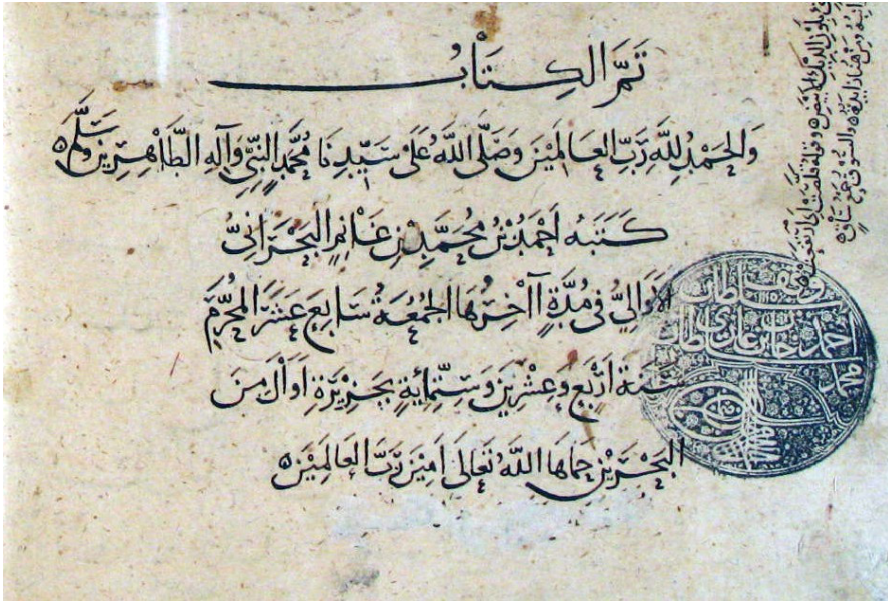 تَمَّ الكِتَابُ
وَالحَمْدُ لِلَّهِ رَبِّ العَالَمِيْنَ وَصَلَّى اللَّهُ عَلَى سَيِّدِنَا مُحَمَّدٍ النَّبِيِّ وَآلِهِ الطَّاهِرِيْنَ وَسَلَّمَ
كَتَبَهُ اَحْمَدُ بْنُ مُحَمَّدِ بْنِ غَانِمٍ البَحْرَانِيُّ
الاَوَالِيُّ فِي مُدَّةٍ آخِرُهَا الجُمُعَةُ سَابِعَ عَشَرَ المُحَرَّمِ
سَنَةَ اَرْبَعٍ وَعِشْرِيْنَ وَسِتِّمِائَةٍ بِجَزِيْرَةِ اَوَالَ مِنَ
البَحْرَيْنِ حَمَاهَا اللَّهُ تَعَالَى اَمِيْنَ رَبَّ العَالَمِيْنَ